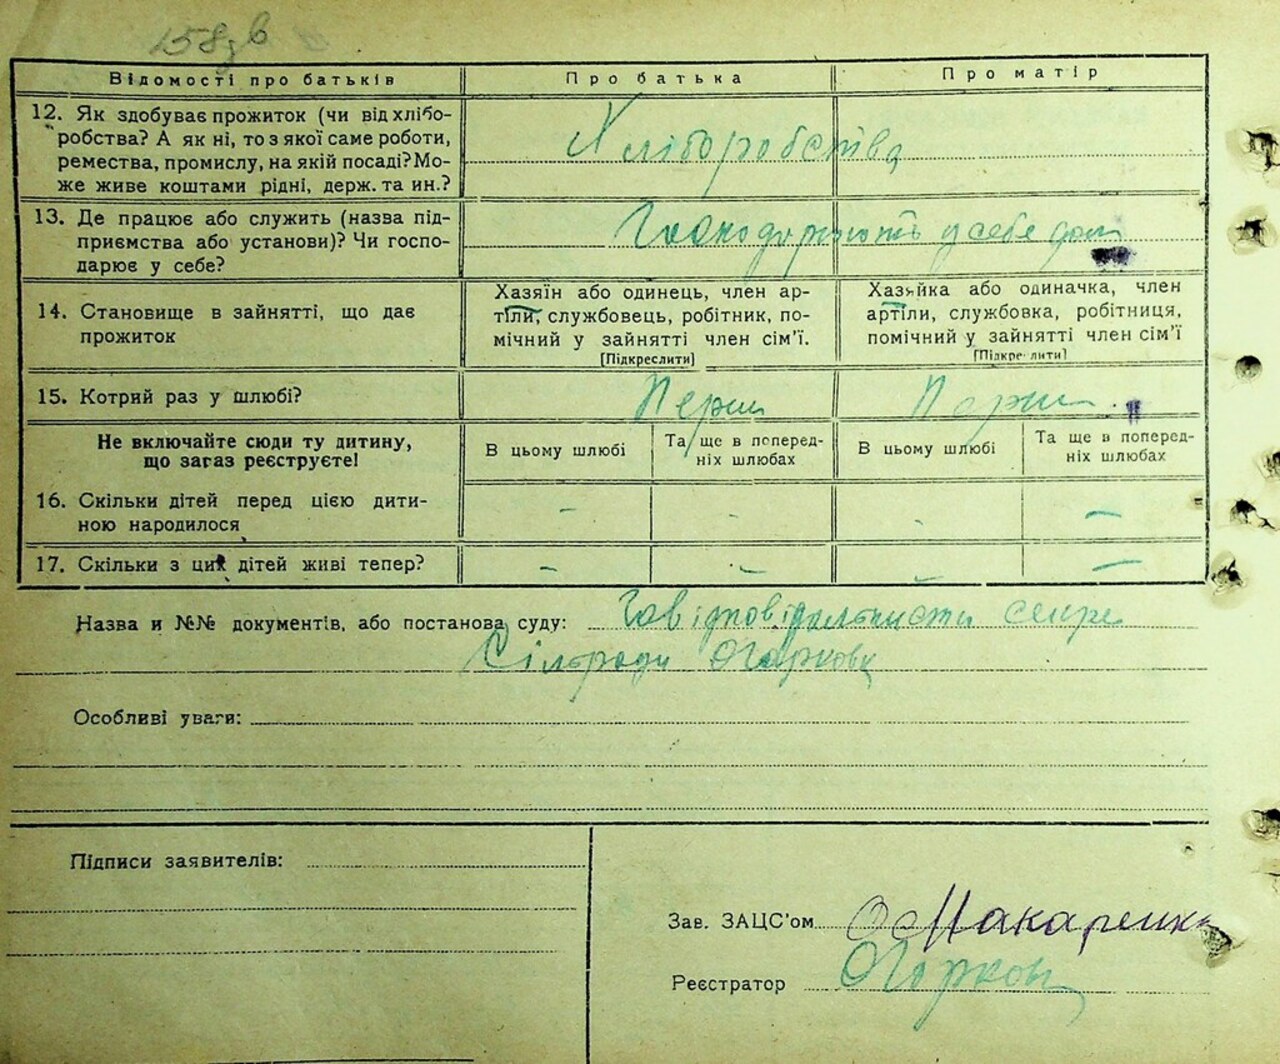 158зв
Відомості про батьків Про батька Про матір
12. Як здобуває прожиток (чи від хлібо-
робства? А як ні, то з якої саме роботи,
ремества, промислу, на якій посаді? Мо-
же живе коштами рідні, держ. та ин.?
Хліборобства
13. Де працює або служить (назва під-
приємства або установи)? Чи госпо-
дарює у себе?
у себе дома
14. Становище в зайнятті, що дає
прожиток
Хазяїн або одинець, член ар-
тіли, службовець, робітник, по-
мічний у зайнятті член сім'ї.
[Підкреслити]
Хазяйка або одиначка, член
артіли, службовка, робітниця,
помічний у зайнятті член сім'ї
[Підкреслити]
15. Котрий раз у шлюбі? Перш Перш
Не включайте сюди ту дитину,
що зараз реєструєте!
В цьому шлюбі
Та ще в поперед-
ніх шлюбах
В цьому шлюбі
Та ще в поперед-
ніх шлюбах
16. Скільки дітей перед цією дити-
ною народилося
- - - -
17. Скільки з цих дітей живі тепер?
- - - -
Назва и №№ документів, або постанова суду: відповідальнисти секре
Сільради Огаркова
Особливі уваги:
Підписи заявителів:
Зав. ЗАЦС'ом Макаренко
Реєстратор Огарков